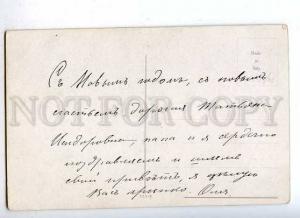 Съ Новымъ годомъ, съ новымъ
счастьемъ дорогая Татьяна
папа и я сердечно
поздравляемъ и шлемъ
свой привѣтъ, я цѣлую
Васъ крѣпко. Оля
Made
in
NOT FOR COPY